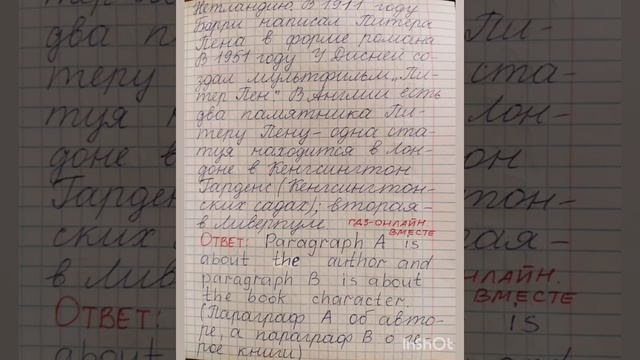 Нетландию. В 1911 году
Барри написал Питера
Пена в форме романа.
В 1951 году У Дисней со-
здал мультфильм „Пи-
тер Пен". В Англии есть
два памятника Пи-
теру Пену - одна ста-
туя находится в Лон-
доне в Кенгсингтон
Гарденс (Кенгсингтон-
ских садах); вторая-
в Ливерпуле.
ГДЗ-ОНЛАЙН
ВМЕСТЕ
ОТВЕТ: Paragraph A is
about the author and
paragraph B is about
the book character.
(Параграф А об авто-
ре, а параграф В о ге-
рое книги)
InShOt